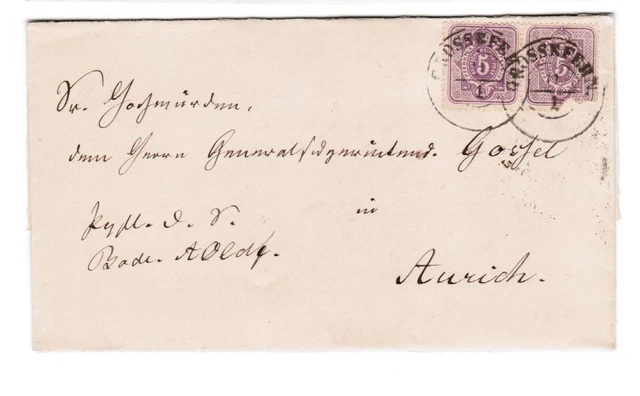 GROSSEFEHN
5
1
GROSSEFEHN
5
1
Sr. Hochwürden,
dem Herrn Generalsuperintend. Gossel
in
Aurich.
d. S.